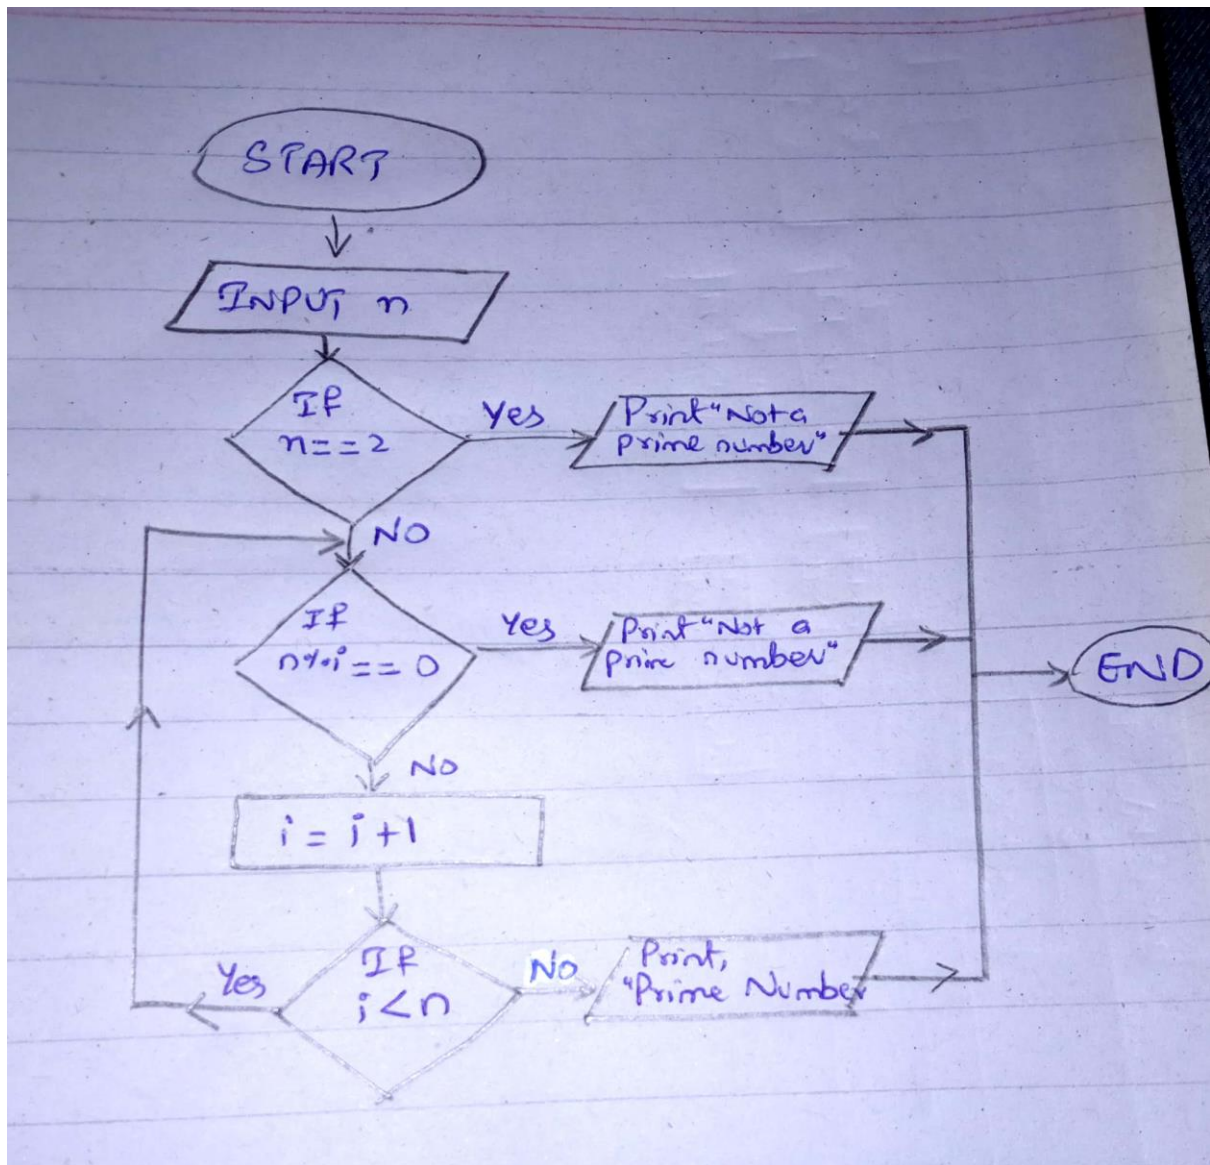 START
INPUT n
If
n==2
Yes
Print "Not a
prime number"
NO
If
n%i==0
Yes
Print "Not a
prime number"
END
NO
i = i+1
If
i<n
Yes
No
Print,
"Prime Number